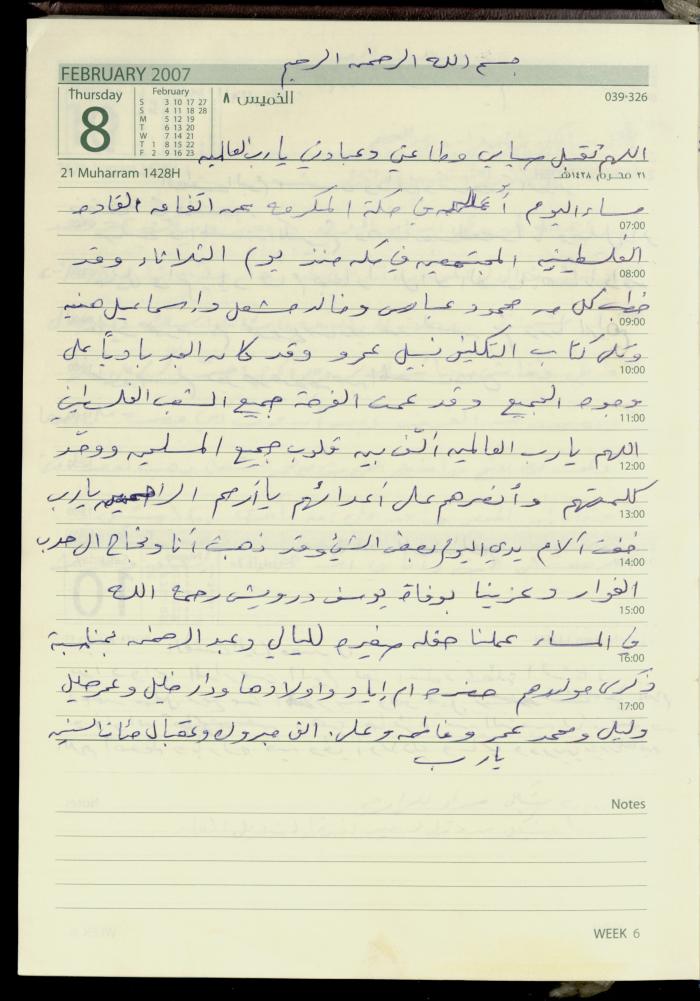 بسم الله الرحمن الرحيم
FEBRUARY 2007
Thursday
8
February
S 3 10 17 27
S 4 11 18 28
M 5 12 19
T 6 13 20
W 7 14 21
T 1 8 15 22
F 2 9 16 23
الخميس ٨
039-326
اللهم تقبل صيامي وطاعتي وعبادتي يا رب العالمين
21 Muharram 1428H
٢١ محرم ١٤٢٨هـ
مساء اليوم أُعلن في مكة المكرمة عن اتفاق القادة
07:00
الفلسطينيين المجتمعين في مكة منذ يوم الثلاثاء وقد
08:00
خطب كل من محمود عباس وخالد مشعل واسماعيل هنيه
09:00
وتلى كتاب التكليف نبيل عمرو وقد كان البشر بادياً على
10:00
وجوه الجميع وقد عمت الفرحة جميع الشعب الفلسطيني
11:00
اللهم يا رب العالمين ألّف بين قلوب جميع المسلمين ووحّد
12:00
كلمتهم وأنصرهم على أعدائهم يا أرحم الراحمين يا رب
13:00
خفت آلام يدي اليوم بعض الشيء وقد ذهبت أنا ونجاح الى حدب
14:00
الفوار وعزينا بوفاة يوسف درويش رحمه الله
15:00
في المساء عملنا حفله صغيره لليالي وعبد الرحمن بمناسبة
16:00
ذكرى مولدهم حضره ام إياد واولادها ودار خليل وعمر خليل
17:00
وليلى ومحمد عمر وفاطمه وعلي. الف مبروك وعقبال مئات السنين
يا رب
Notes
WEEK 6